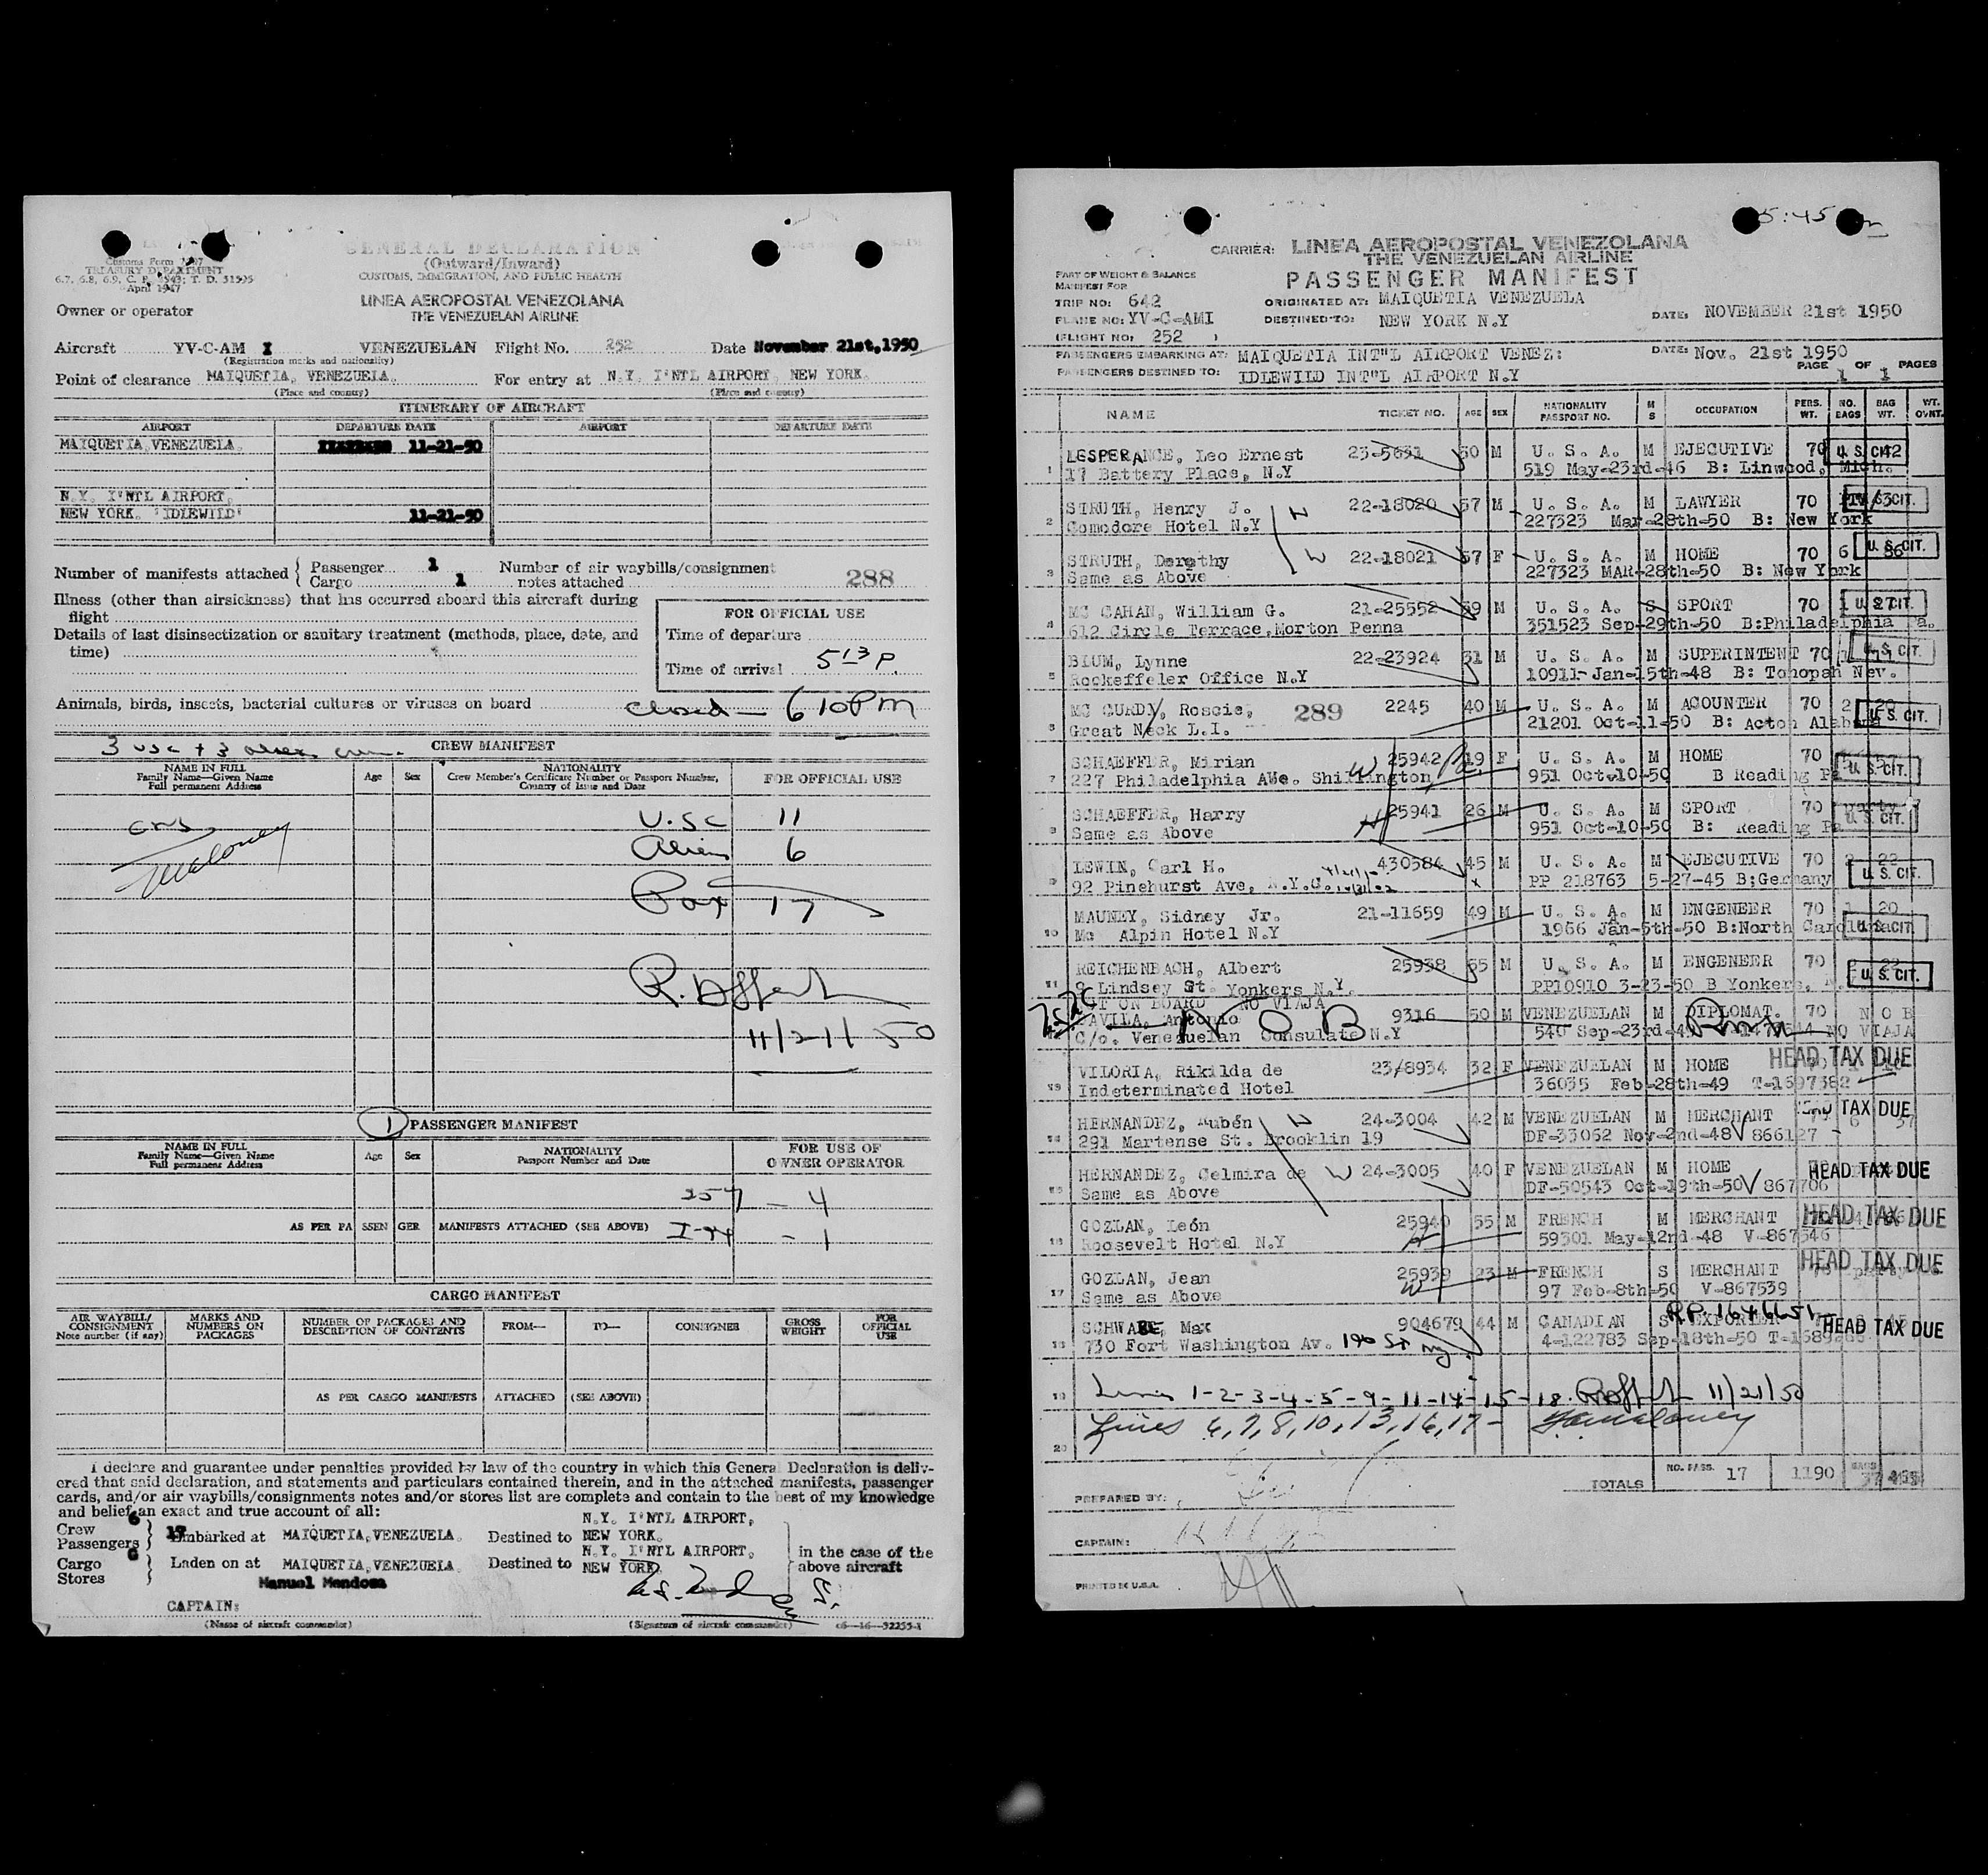 GENERAL DECLARATION
(Outward/Inward)
CUSTOMS, IMMIGRATION, AND PUBLIC HEALTH
TREASURY DEPARTMENT
April 1947
LINEA AEROPOSTAL VENEZOLANA
THE VENEZUELAN AIRLINE
Owner or operator
Aircraft YV-C-AM I VENEZUELAN Flight No. 252 Date November 21st, 1950
(Registration marks and nationality)
Point of clearance MAIQUETIA, VENEZUELA. For entry at N.Y. I'NTL AIRPORT, NEW YORK.
(Place and country) (Place and country)
ITINERARY OF AIRCRAFT
AIRPORT DEPARTURE DATE AIRPORT DEPARTURE DATE
MAIQUETIA, VENEZUELA. 11-21-50
N.Y. I'NTL AIRPORT,
NEW YORK. 'IDLEWILD' 11-21-50
Number of manifests attached { Passenger 1 Number of air waybills/consignment
Cargo 1 notes attached 288
Illness (other than airsickness) that has occurred aboard this aircraft during
flight
FOR OFFICIAL USE
Details of last disinsectization or sanitary treatment (methods, place, date, and
time)
Time of departure
Time of arrival 5 13 P.
Animals, birds, insects, bacterial cultures or viruses on board closed — 6 10 PM
3 USC + 3 alien crew CREW MANIFEST
NAME IN FULL
Family Name—Given Name
Full permanent Address
Age Sex
NATIONALITY
Crew Member's Certificate Number or Passport Number,
Country of Issue and Date
FOR OFFICIAL USE
U.SC 11
Alien 6
Maloney
Pax 17
11/21/50
1 PASSENGER MANIFEST
NAME IN FULL
Family Name—Given Name
Full permanent Address
Age Sex
NATIONALITY
Passport Number and Date
FOR USE OF
OWNER OPERATOR
257 — 4
AS PER PASSENGER MANIFESTS ATTACHED (SEE ABOVE) I-94 - 1
CARGO MANIFEST
AIR WAYBILL/
CONSIGNMENT
Note number (if any)
MARKS AND
NUMBERS ON
PACKAGES
NUMBER OF PACKAGES AND
DESCRIPTION OF CONTENTS
FROM— TO— CONSIGNEE
GROSS
WEIGHT
FOR
OFFICIAL
USE
AS PER CARGO MANIFESTS ATTACHED (SEE ABOVE)
I declare and guarantee under penalties provided by law of the country in which this General Declaration is deliv-
ered that said declaration, and statements and particulars contained therein, and in the attached manifests, passenger
cards, and/or air waybills/consignments notes and/or stores list are complete and contain to the best of my knowledge
and belief an exact and true account of all:
Crew 6
Passengers 17 Embarked at MAIQUETIA, VENEZUELA. Destined to N.Y. I'NTL AIRPORT, NEW YORK.
Cargo
Stores Laden on at MAIQUETIA, VENEZUELA Destined to N.Y. I'NTL AIRPORT, NEW YORK.
in the case of the
above aircraft
Manuel Mendoza
CAPTAIN:
(Name of aircraft commander) (Signature of aircraft commander) c6—16—52255-1
5:45
CARRIER: LINEA AEROPOSTAL VENEZOLANA
THE VENEZUELAN AIRLINE
PASSENGER MANIFEST
PART OF WEIGHT & BALANCE
MANIFEST FOR
TRIP NO: 642 ORIGINATED AT: MAIQUETIA VENEZUELA
PLANE NO: YV-C-AMI DESTINED TO: NEW YORK N.Y DATE: NOVEMBER 21st 1950
(FLIGHT NO: 252 )
PASSENGERS EMBARKING AT: MAIQUETIA INT"L AIRPORT VENEZ: DATE: Nov. 21st 1950
PASSENGERS DESTINED TO: IDLEWILD INT"L AIRPORT N.Y PAGE 1 OF 1 PAGES
NAME TICKET NO. AGE SEX NATIONALITY PASSPORT NO. M S OCCUPATION PERS. WT. NO. BAGS BAG WT. WT. OVNT.
1 LESPERANCE, Leo Ernest 23-5651 50 M U. S. A. M EJECUTIVE 70 U. S. CIT. 42
17 Battery Place, N.Y 519 May-23rd-46 B: Linwood, Mich.
2 STRUTH, Henry J. 22-18020 57 M U. S. A. M LAWYER 70 CIT.
Comodore Hotel N.Y 227323 Mar-28th-50 B: New York
3 STRUTH, Dorothy 22-18021 57 F U. S. A. M HOME 70 6 86 U. S. CIT.
Same as Above 227323 MAR-28th-50 B: New York
4 MC CAHAN, William G. 21-25552 59 M U. S. A. S SPORT 70 1 27 U. S. CIT.
612 Circle Terrace, Morton Penna 351523 Sep-29th-50 B:Philadelphia Pa.
5 BLUM, Lynne 22-23924 31 M U. S. A. M SUPERINTENT 70 U. S. CIT.
Rockeffeler Office N.Y 10911- Jan-15th-48 B: Tonopah Nev.
6 MC CURDY, Roscie, 289 2245 40 M U. S. A. M ACOUNTER 70 2 20 U. S. CIT.
Great Neck L.I. 21201 Oct-11-50 B: Acton Alabama
7 SCHAEFFER, Mirian 25942 19 F U. S. A. M HOME 70 U. S. CIT.
227 Philadelphia Ave. Shillington 951 Oct-10-50 B Reading Pa
8 SCHAEFFER, Harry 25941 26 M U. S. A. M SPORT 70 party U. S. CIT.
Same as Above 951 Oct-10-50 B: Reading Pa
9 LEWIN, Carl H. 430584 45 M U. S. A. M EJECUTIVE 70 2 22
92 Pinehurst Ave, N.Y.C. PP 218763 5-27-45 B;Germany U. S. CIT.
10 MAUNEY, Sidney Jr. 21-11659 49 M U. S. A. M ENGENEER 70 1 20
Mc Alpin Hotel N.Y 1966 Jan-5th-50 B:North Carolina U. S. CIT
11 REICHENBACH, Albert 25938 55 M U. S. A. M ENGENEER 70 22 U. S. CIT.
9 Lindsey St. Yonkers N.Y. PP10910 3-23-50 B Yonkers.
NOT ON BOARD NO VIAJA
DAVILA, Antonio N O B 9316 50 M VENEZUELAN M DIPLOMAT. 70 N O B
C/o. Venezuelan Consulate N.Y 540 Sep-23rd-49 NO VIAJA
13 VILORIA, Rikilda de 23/8934 32 F VENEZUELAN M HOME HEAD TAX DUE
Indeterminated Hotel 36035 Feb-28th-49 T-1697382
14 HERNANDEZ, Rubén 24-3004 42 M VENEZUELAN M MERCHANT TAX DUE
291 Martense St. Brooklin 19 DF-33062 Nov-2nd-48 V 866127 6 57
15 HERNANDEZ, Celmira de W 24-3005 40 F VENEZUELAN M HOME HEAD TAX DUE
Same as Above DF-50543 Oct-19th-50 V 867706
16 GOZLAN, León 25940 55 M FRENCH M MERCHANT HEAD TAX DUE
Roosevelt Hotel N.Y H 59301 May-12nd-48 V-867546
17 GOZLAN, Jean 25939 23 M FRENCH S MERCHANT 70 party HEAD TAX DUE
Same as Above W 97 Feb-8th-50 V-867539
RP. 1646651
18 SCHWABE, Max 904679 44 M CANADIAN S EXPORTER HEAD TAX DUE
730 Fort Washington Av. 190 St NY 4-122783 Sep-18th-50
19 Lines 1-2-3-4-5-9-11-14-15-18 11/21/50
20 Lines 6,7,8,10,13,16,17- Maloney
TOTALS NO. PASS. 17 1190 BAGS 37
PREPARED BY:
CAPTAIN:
PRINTED IN U.S.A.